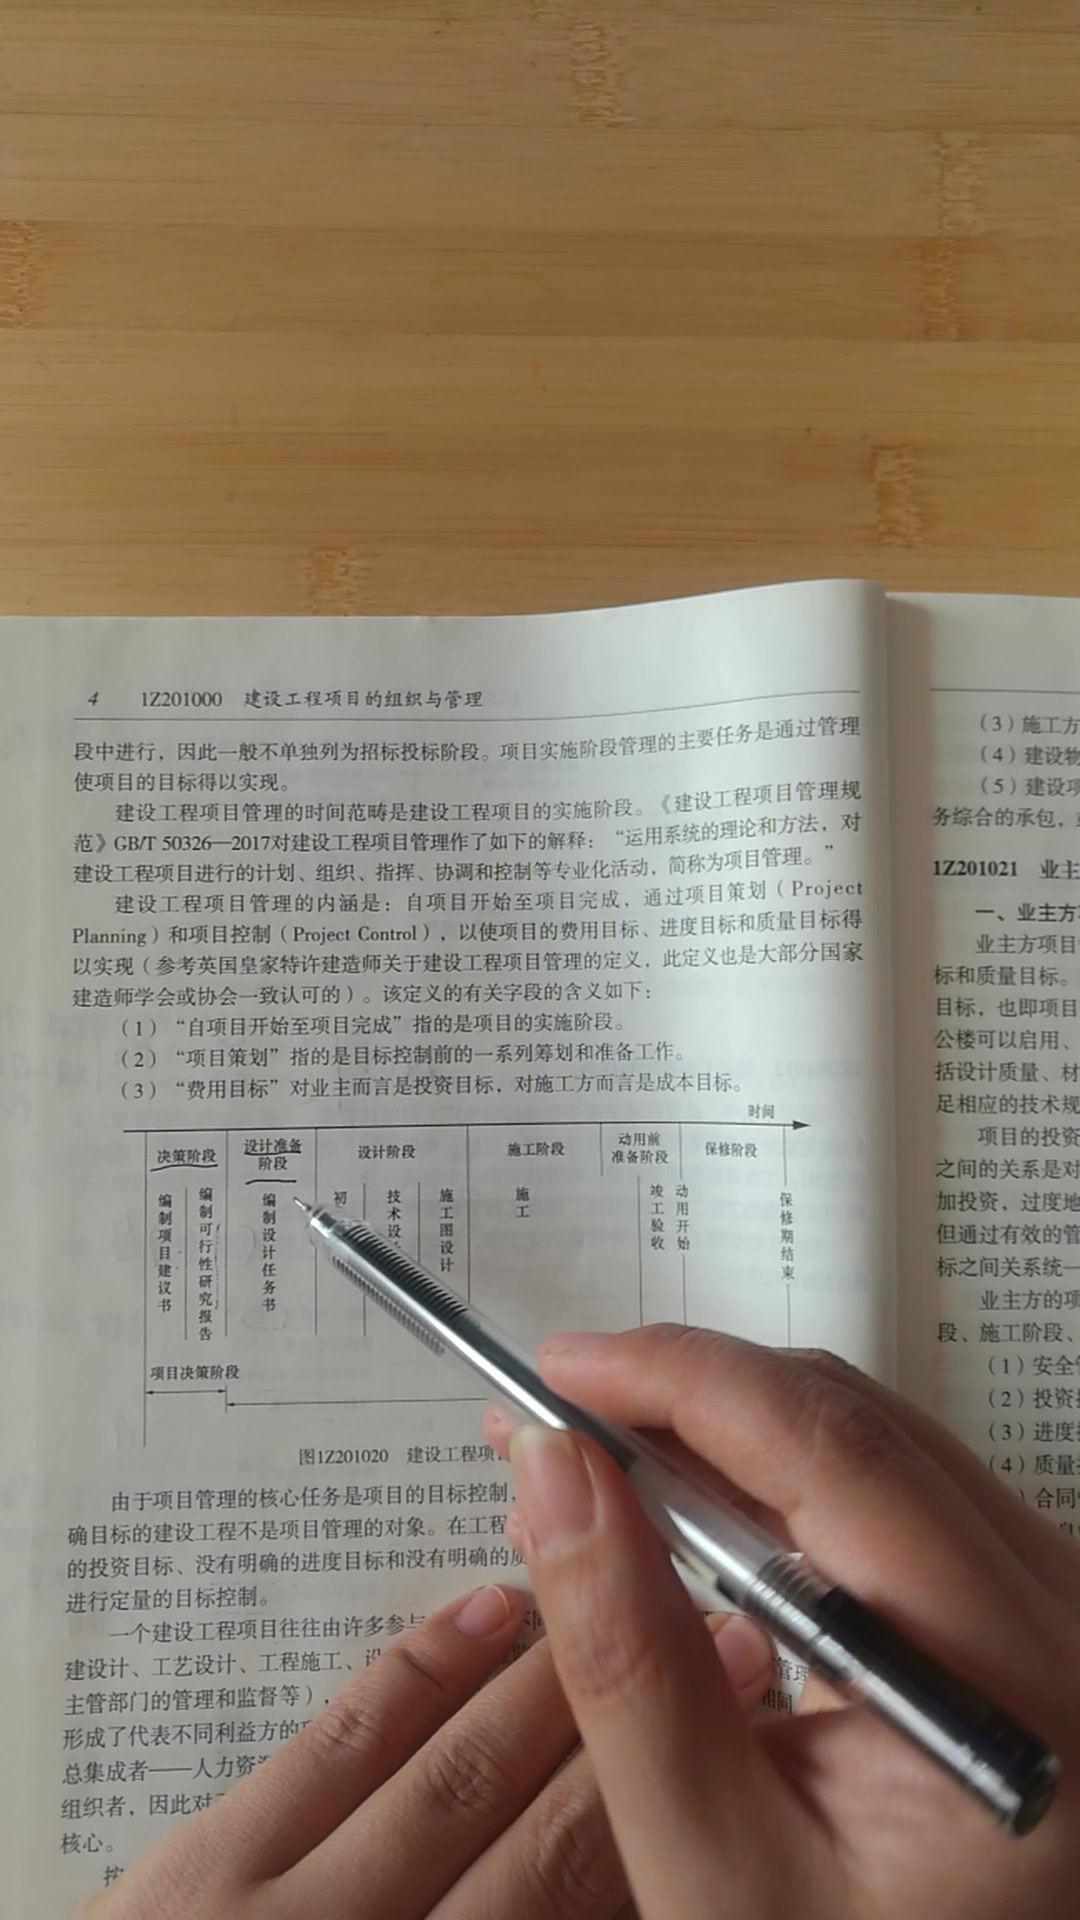 4 1Z201000 建设工程项目的组织与管理
段中进行，因此一般不单独列为招标投标阶段。项目实施阶段管理的主要任务是通过管理
使项目的目标得以实现。
建设工程项目管理的时间范畴是建设工程项目的实施阶段。《建设工程项目管理规
范》GB/T 50326—2017对建设工程项目管理作了如下的解释：“运用系统的理论和方法，对
建设工程项目进行的计划、组织、指挥、协调和控制等专业化活动，简称为项目管理。”
建设工程项目管理的内涵是：自项目开始至项目完成，通过项目策划（Project
Planning）和项目控制（Project Control），以使项目的费用目标、进度目标和质量目标得
以实现（参考英国皇家特许建造师关于建设工程项目管理的定义，此定义也是大部分国家
建造师学会或协会一致认可的）。该定义的有关字段的含义如下：
（1）“自项目开始至项目完成”指的是项目的实施阶段。
（2）“项目策划”指的是目标控制前的一系列筹划和准备工作。
（3）“费用目标”对业主而言是投资目标，对施工方而言是成本目标。
时间
决策阶段
设计准备
阶段
设计阶段
施工阶段
动用前
准备阶段
保修阶段
编制项目建议书
编制可行性研究报告
编制设计任务书
初
技术设
施工图设计
施工
竣工验收
动用开始
保修期结束
项目决策阶段
图1Z201020 建设工程项
由于项目管理的核心任务是项目的目标控制，
确目标的建设工程不是项目管理的对象。在工程
的投资目标、没有明确的进度目标和没有明确的质
进行定量的目标控制。
一个建设工程项目往往由许多参与
建设计、工艺设计、工程施工、设
主管部门的管理和监督等），
形成了代表不同利益方的项
总集成者——人力资源
组织者，因此对
核心。
管理
相同
（3）施工方
（4）建设物
（5）建设项
务综合的承包，
1Z201021 业主
一、业主方
业主方项目
标和质量目标。
目标，也即项目
公楼可以启用、
括设计质量、材
足相应的技术规
项目的投资
之间的关系是对
加投资，过度地
但通过有效的管
标之间关系统一
业主方的项
段、施工阶段、
（1）安全管
（2）投资控
（3）进度控
（4）质量
）合同